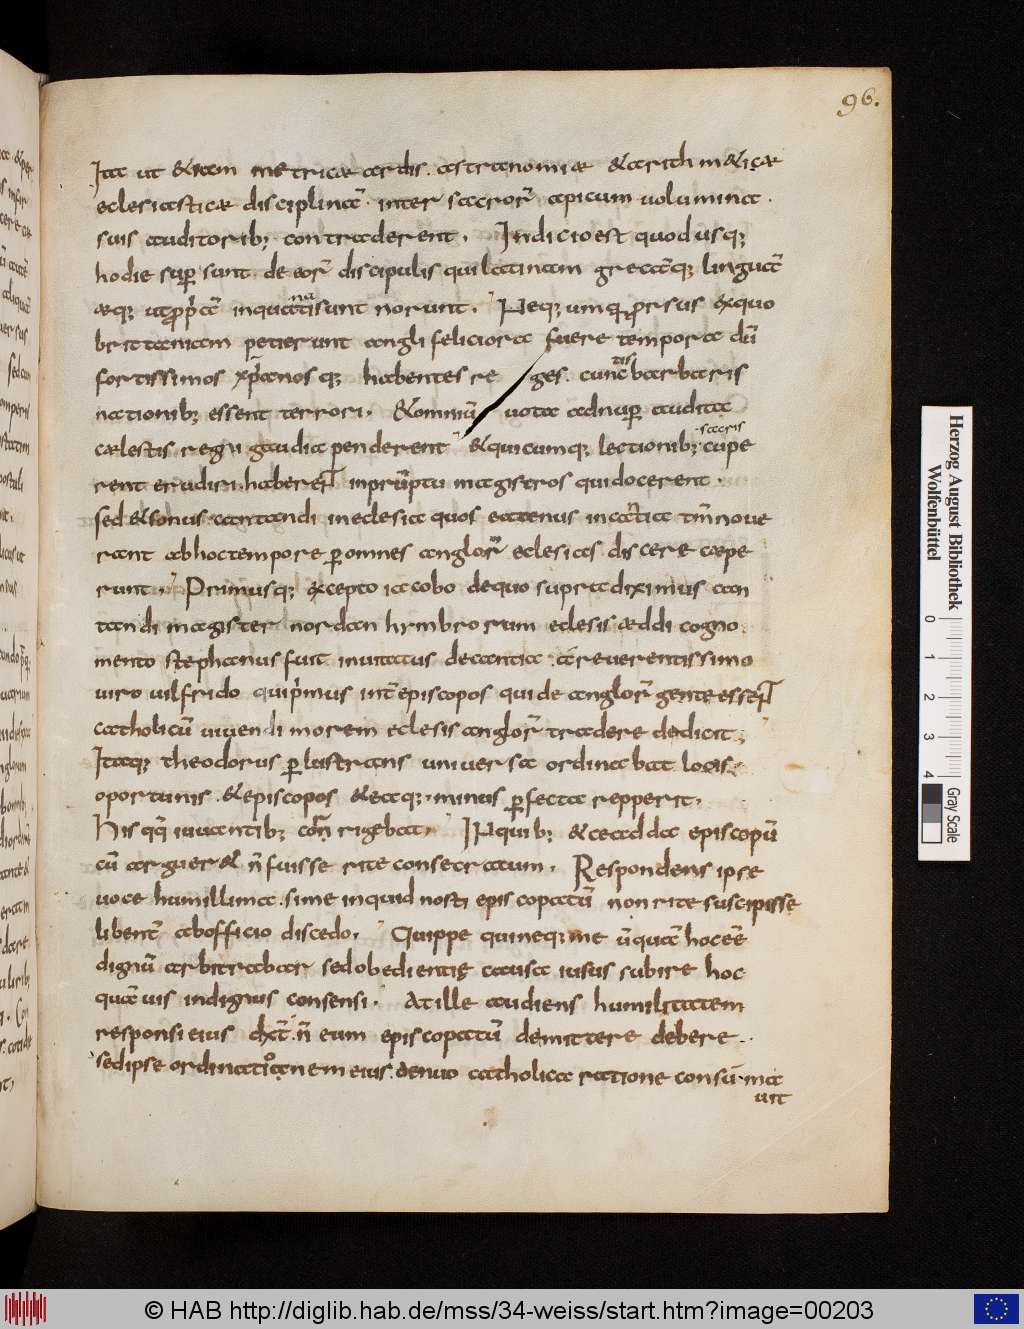 96.
Ita ut &iam metricae artis. astronomiae &arithm&icae
eclesiasticae disciplinā. inter sacrorū apicum uolumina.
suis auditorib; contraderent. Indicio est quod usq;
hodie supersunt de eorū discipulis qui latinam grecāq; linguā
aeq; ut propriā in qua nati sunt norunt. Neq; umq prorsus exquo
brittaniam petierunt angli feliciora fuere tempora dū
fortissimos xp̄ianosq; habentes reges. cunctis barbaris
nationib; essent terrori. &omniū uota ad nuper audita
caelestis regni gaudia penderent &quicumq; lectionib; sacris cupe
rent erudiri. haberent inprūptu magistros qui docerent.
sed &sonus cantandi in eclesia quos eatenus in cantia tm̄ noue
rant ab hoc tempore p omnes anglorū eclesias discere cape
runt. Primusq; excepto iacobo de quo supra diximus can
tandi magister nordanhymbrorum eclesis aeddi cogno
mento stephanus fuit inuitatus de cantia a reuerentissimo
uiro uilfrido qui primus int̄ episcopos qui de anglorū gente essent
catholicū uiuendi morem eclesis anglorū tradere dedicit.
Itaq; theodorus plustrans uniuersa ordinabat locis
oportunis. &episcopos &eaq; minus pfecta repperit.
His qq; iuuantib; corrigebat. IN quib; &ceadda episcopū
cū arguer& n̄ fuisse rite consecratum. Respondens ipse
uoce humillima. si me inquid nosti episcopatū non rite suscipisse
libent̄ ab officio discedo. Quippe qui neq; me ūquā hoc eē
dignū arbitrabar sed obedientie causa iusus subire hoc
quāuis indignus consensi. At ille audiens humilitatem
responsi eius dixit n̄ eum episcopatū demittere debere.
sed ipse ordinationem eius denuo catholica ratione consūma
uit
Herzog August Bibliothek
Wolfenbüttel
0 1 2 3 4
Gray Scale
© HAB http://diglib.hab.de/mss/34-weiss/start.htm?image=00203